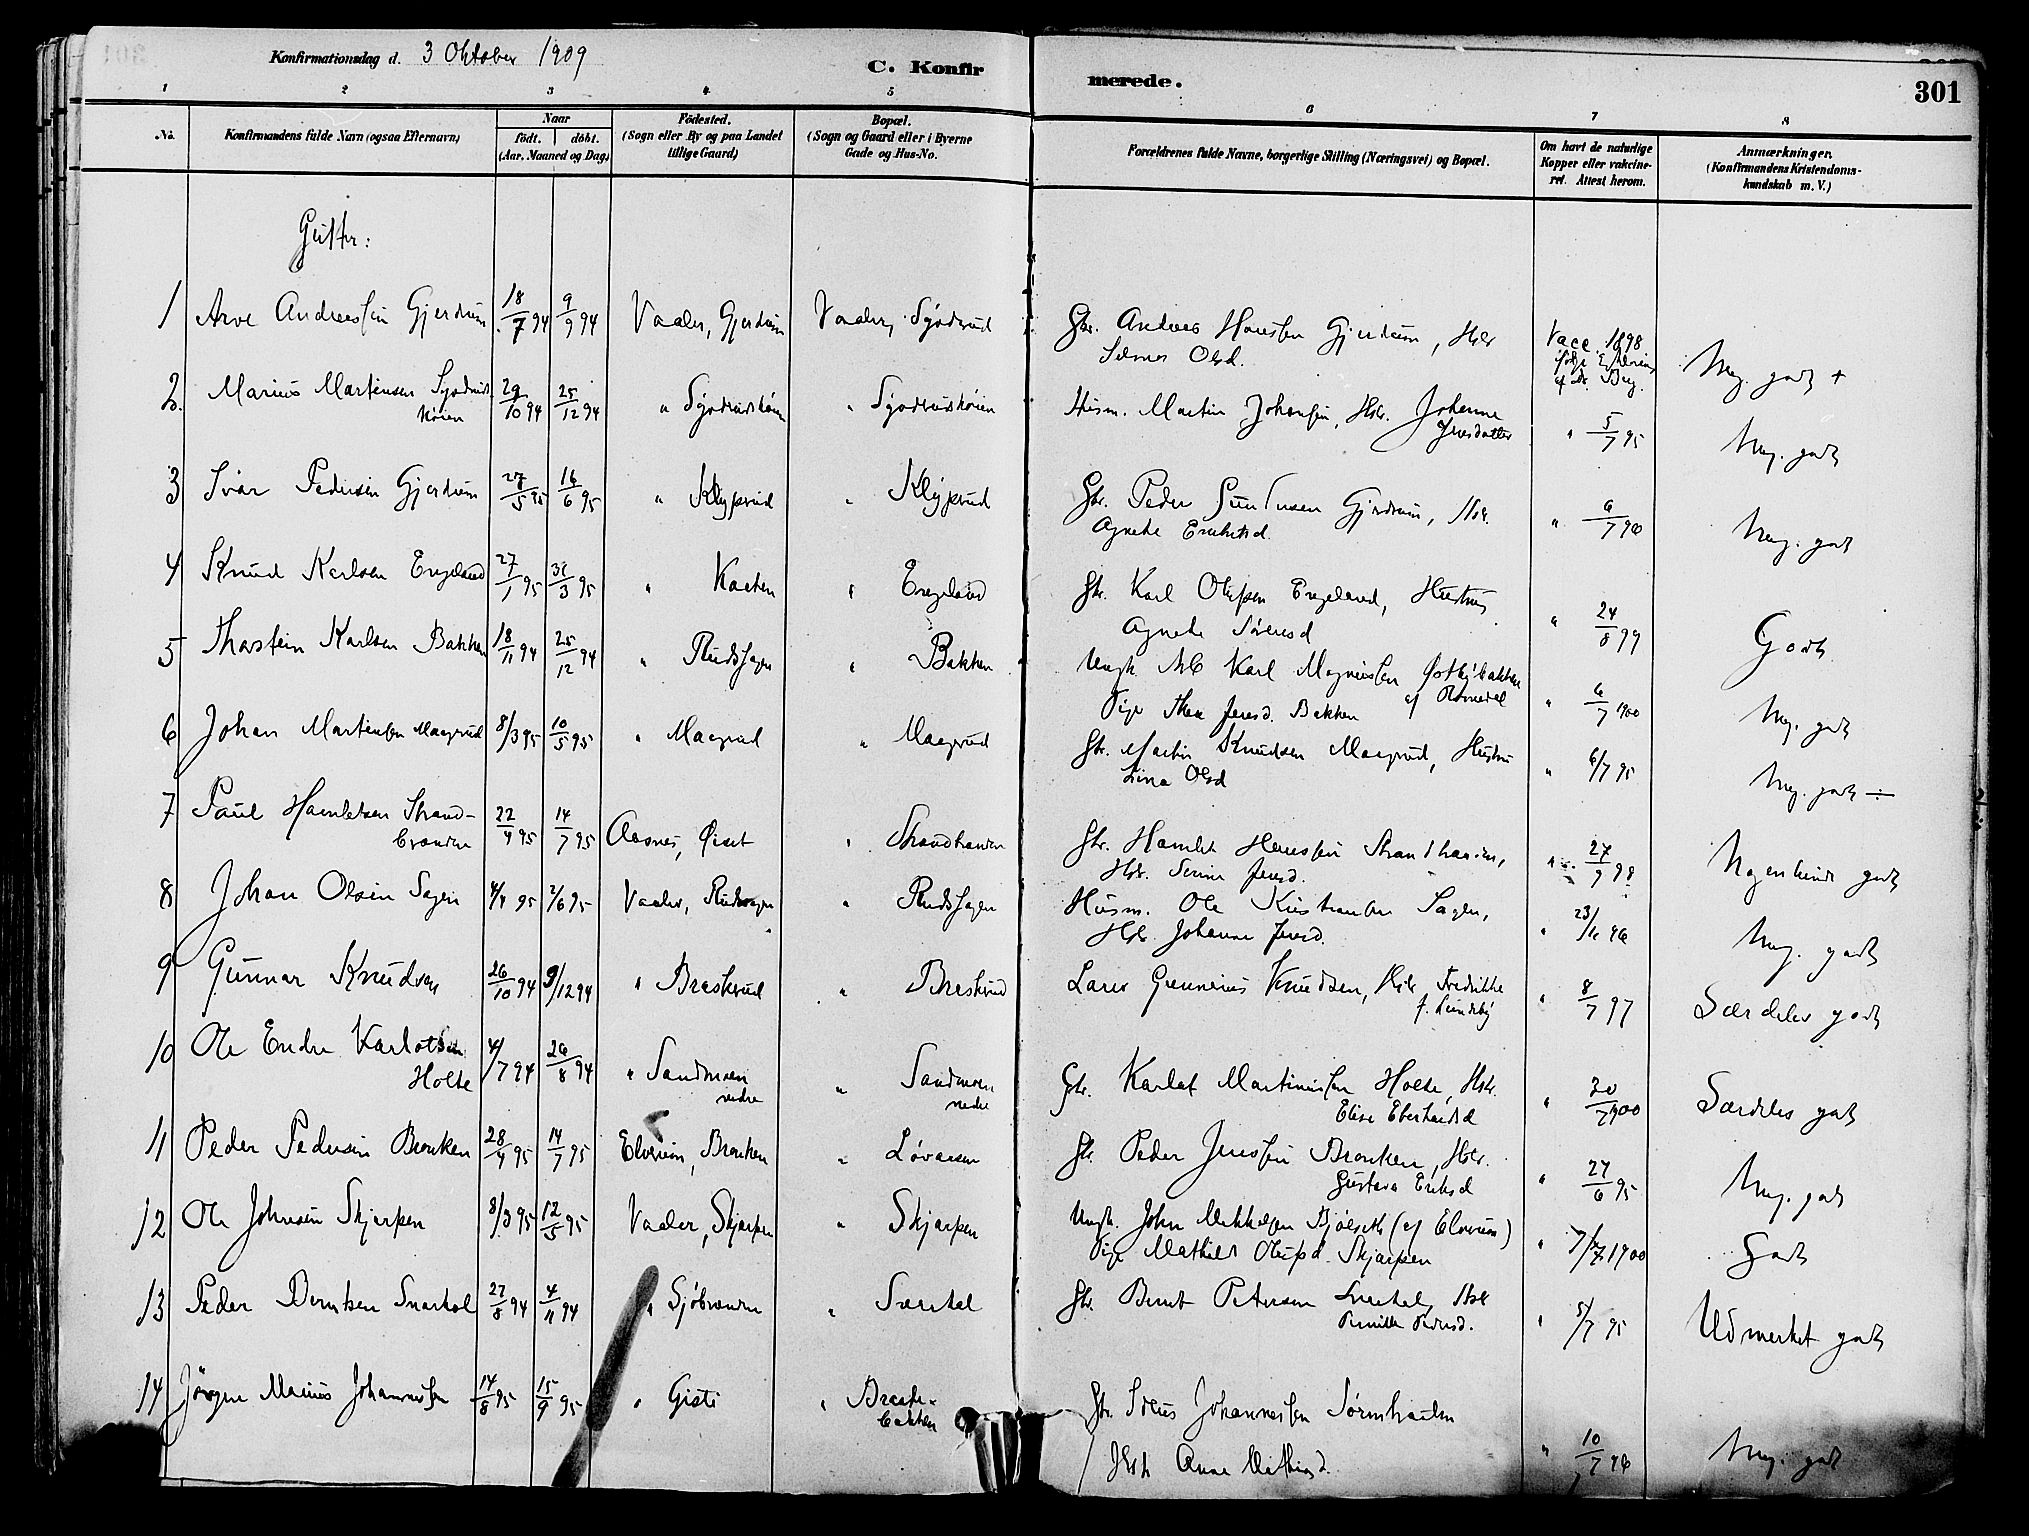 Konfirmationsdag d. 3 Oktober 1909
C. Konfir
merede.
301
1 2 3 4 5 6 7 8
No. Konfirmandens fulde Navn (ogsaa Efternavn) Naar født. døbt. (Aar, Maaned og Dag) Fødested. (Sogn eller By og paa Landet tillige Gaard) Bopæl. (Sogn og Gaard eller i Byerne Gade og Hus-No. Forældrenes fulde Navne, borgerlige Stilling (Næringsvei) og Bopæl. Om havt de naturlige Kopper eller vakcineret. Attest herom. Anmærkninger. (Konfirmandens Kristendomskundskab m. V.)
Gutter:
1 Arve Andreassen Gjerdrum 18/7 94 9/9 94 Vaaler, Gjerdrum Vaaler, Sjødrud Gbr. Andreas Hansen Gjerdrum, Hstr Vacc. 1898
Olsd. Meg. godt +
2. Marius Martinsen 29/10 94 25/12 94 " " Husm. Martin Johansen, Hstr. Johanne
Jensdatter " 5/7 95 Meg. godt
3 Ivar Pedersen Gjerdrum 27/5 95 16/6 95 " Klyprud " Klyprud Gbr. Peder Gjerdrum, Hstr.
Agnethe " 6/7 96 Meg. godt
4 Knud Karlsen Engelund 27/1 95 31/3 95 " " Engelund Gbr. Karl Olufsen Engelund, Hustru
Agnethe " 24/8 99 Godt
5 Thorstein Karlsen Bakken 18/11 94 25/12 94 " Rudshagen " Bakken Ungk. Karl Magnussen
Pige Thea Jensd. Bakken " 6/7 1900 Meg. godt
6 Johan Martinsen Maegrud 8/3 95 10/5 95 " Maegrud " Maegrud Gbr. Martin Knudsen Maegrud, Hustru
Lina Olsd " 6/7 95 Meg. godt ÷
7 Paul Hamletsen Strand-
branden 22/4 95 14/7 95 Aasnes, Øiset " Strandbranden Gbr. Hamlet Hansen
Hstr. Jensd. " 27/9 98 Nogenlunde godt
8 Johan Olsen Sagen 4/4 95 2/6 95 Vaaler, Rudshagen " Rudshagen Husm. Ole Kristiansen Sagen,
Hstr. Johanne Jensd. " 23/11 96 Meg. godt
9 Gunnar Knudsen 26/10 94 9/12 94 " Braskerud " Braskerud Lars Gunnerius Knudsen, Hstr. Fredrikke
f. Lundeby " 8/7 97 Særdeles godt
10 Ole Endre Karlotsen
Holte 4/7 94 26/8 94 " Sandmoen
nedre " Sandmoen
nedre Gbr. Karlot Martiniussen Holte, Hstr.
Elise Eberhardsd " 20/7 1900 Særdeles godt
11 Peder Pedersen Bronken 28/4 95 14/7 95 Elverum, Bronken " Løvaasen Gbr. Peder Jenssen Bronken, Hstr.
Gustava Eriksd " 27/6 95 Meg. godt
12 Ole Johnsen Skjærpen 8/3 95 12/5 95 Vaaler, Skjærpen " Skjærpen Ungk. John Mikkelsen Bjølseth (af Elverum)
Pige Mathilde Olufsd. Skjærpen " 7/7 1900 Godt
13 Peder Berntsen Svartol 27/8 94 4/11 94 " Sjøbranden " Gbr. Bernt Petersen Hstr
Pernille Pedersd. " 5/7 95 Udmerket godt
14 Jørgen Marius Johannessen 14/8 95 15/9 95 " Gisti " Braate-
bakken Gbr. Johannessen
Hstr Anne " 10/7 96 Meg. godt